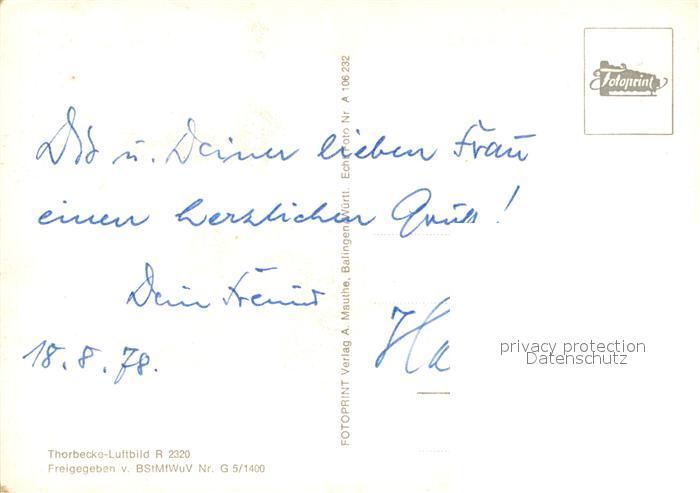 Dir u. Deiner lieben Frau
einen herzlichen Gruß!
Dein Freund
18.8.78.
Ha
Thorbecke-Luftbild R 2320
Freigegeben v. BStMfWuV Nr. G 5/1400
FOTOPRINT Verlag A. Mauthe, Balingen/Württ. Echt Foto Nr A 106 232
Fotoprint
privacy protection
Datenschutz